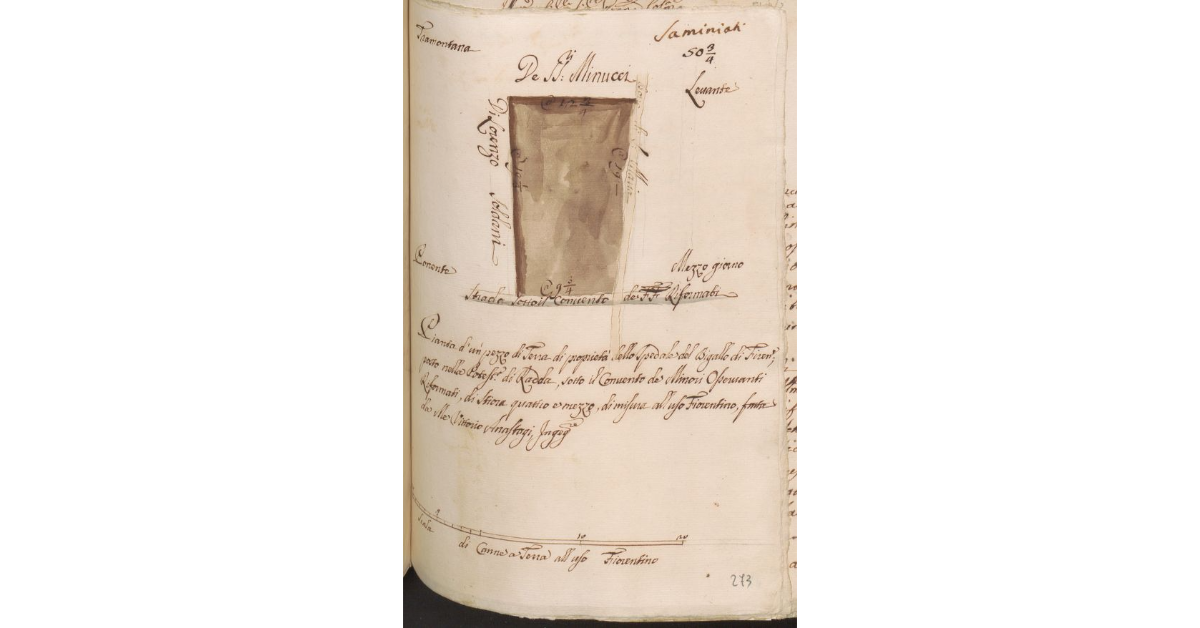 Saminiati
Tramontana
50 3/4
De SS.ri Minucci
Levante
C 12 3/4
Di Lorenzo Soldani
C 19
Ponente
Mezzo giorno
C 9 3/4
Strada sotto il Convento de FF. Riformati
Pianta d'un pezzo di Terra di proprietà dello Spedale del Bigallo di Firenze,
posto nella Potest.a di Radda, sotto il Convento de Minori Osservanti
Riformati, di Stiora quattro e mezzo, di misura all'uso Fiorentino, fatta
da Me Vittorio Anastagi, Ingeg.re
Scala
10
20
di Canne a Terra all'uso Fiorentino
273